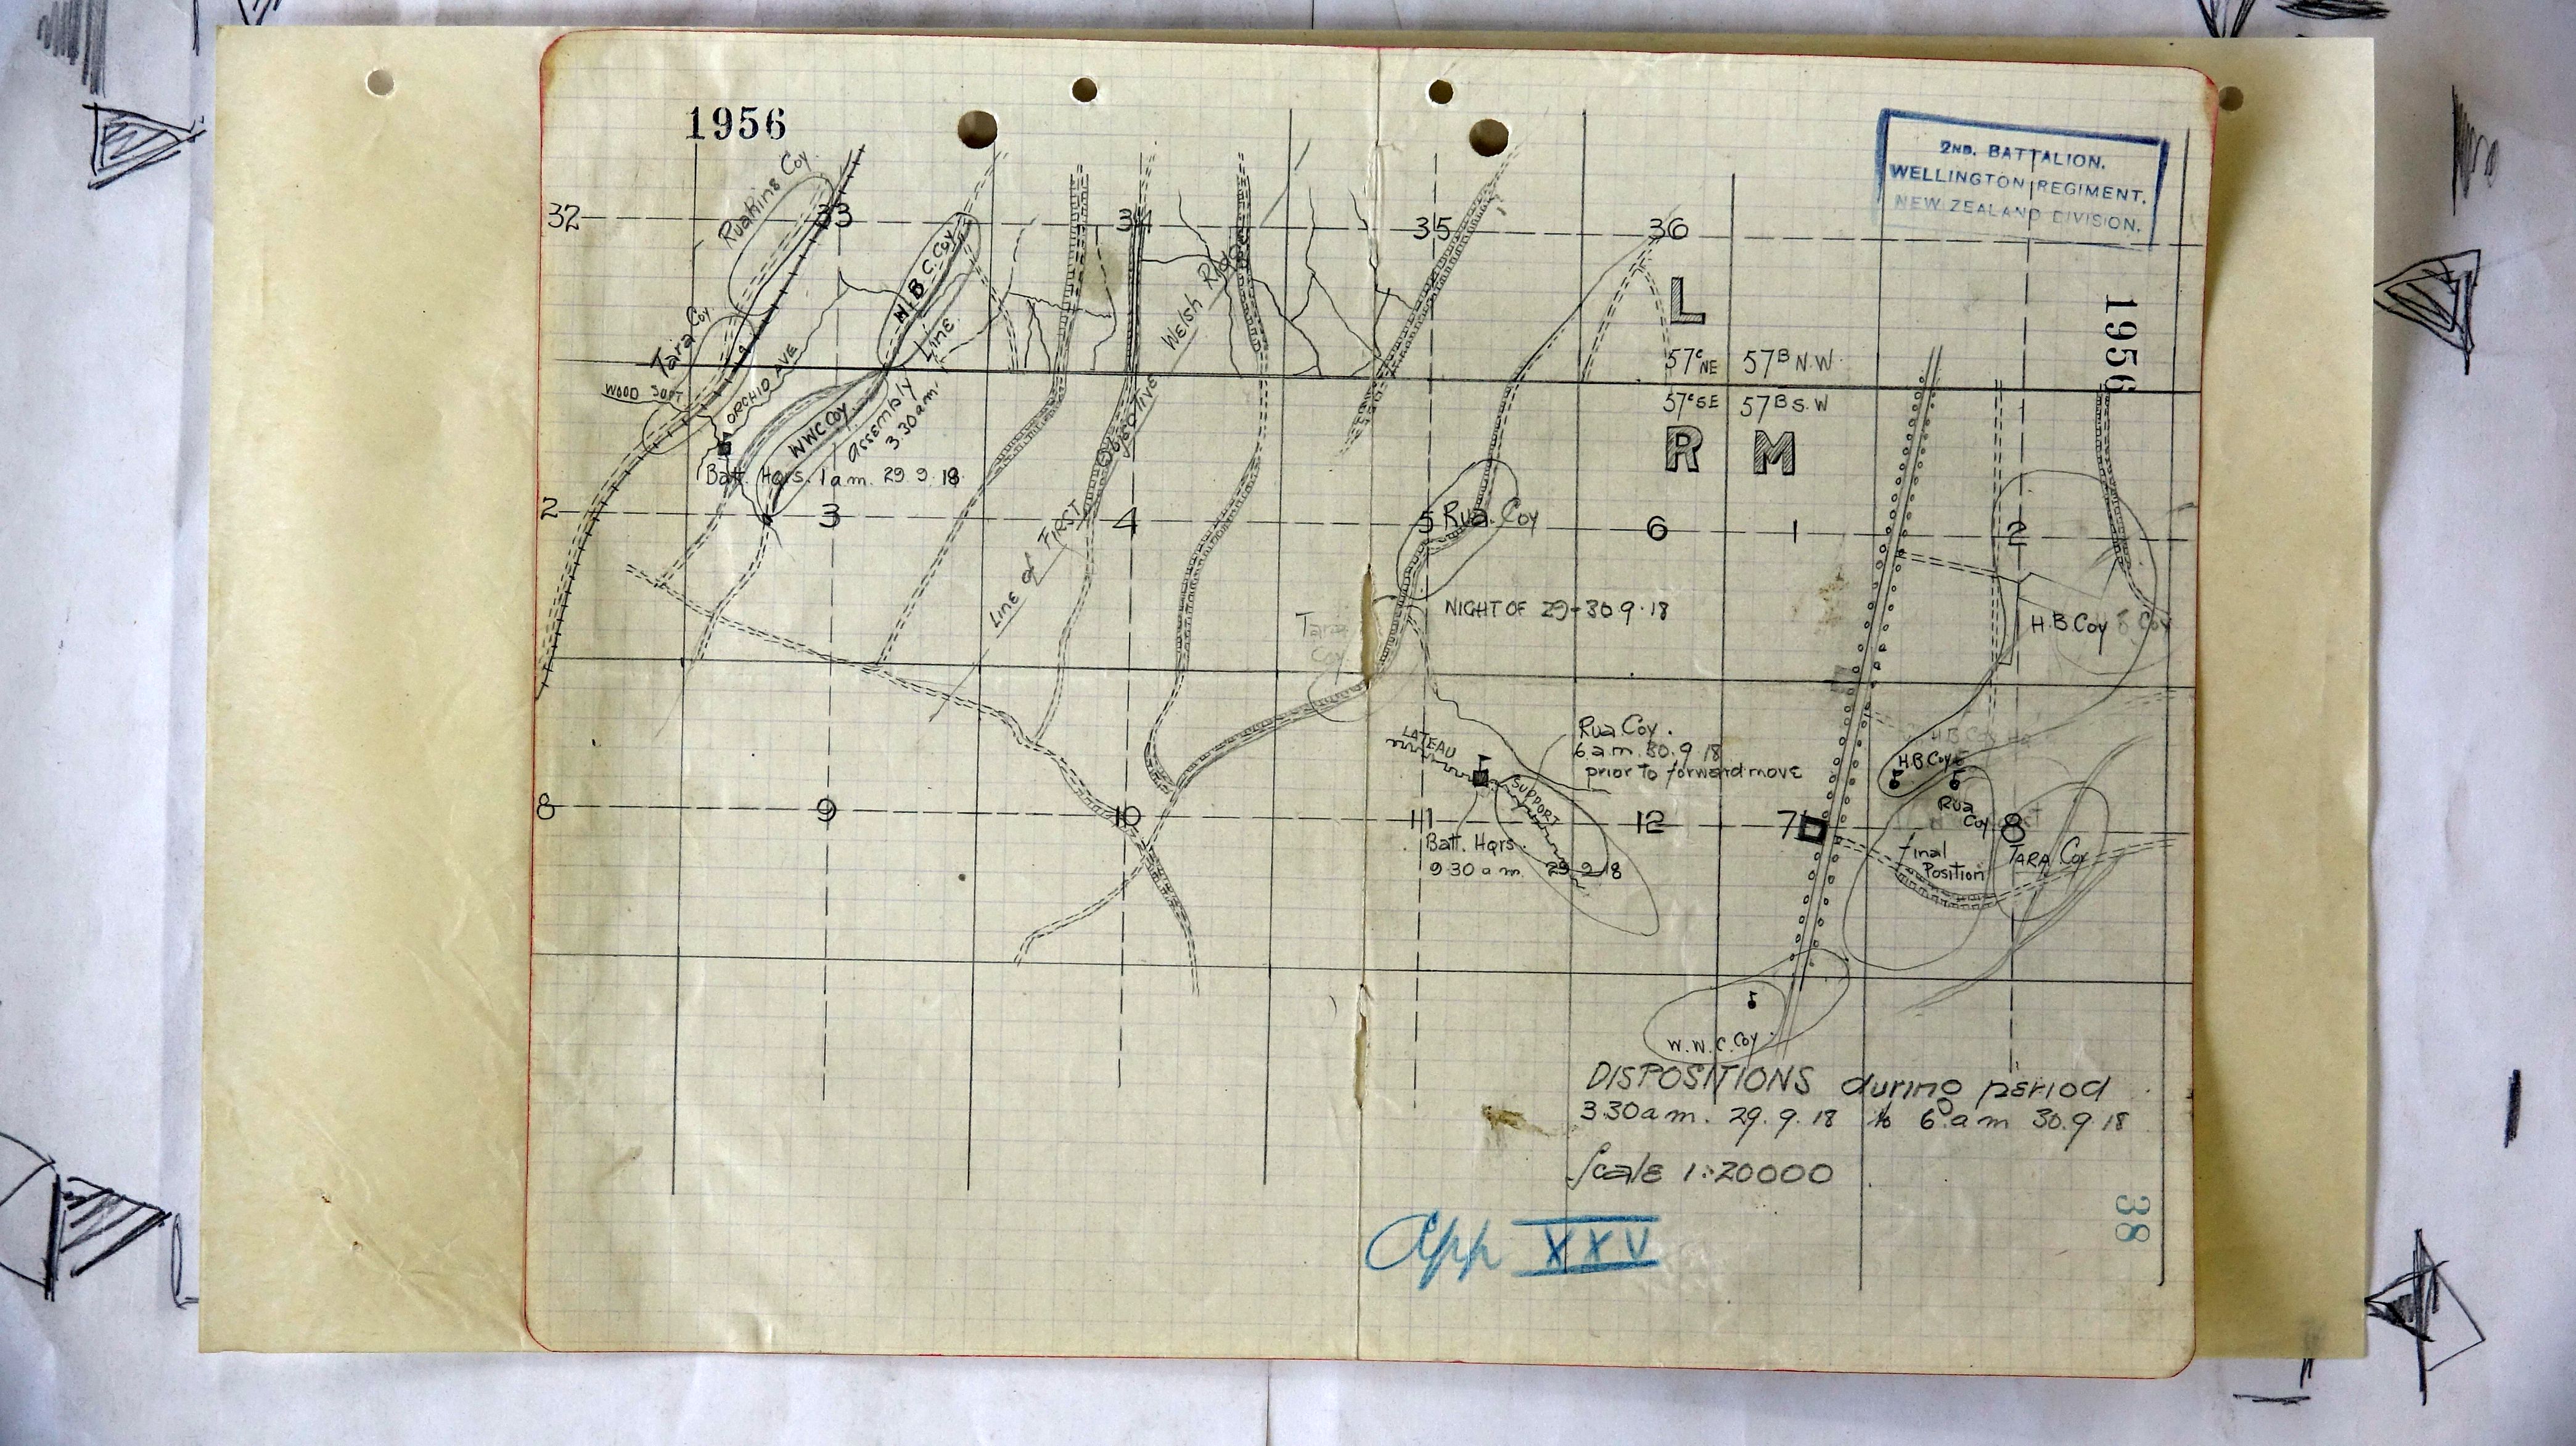 1956
2ND. BATTALION.
WELLINGTON REGIMENT.
NEW ZEALAND DIVISION.
Ruahine Coy
32
33
34
35
36
H.B.C. Coy
Welsh Ridge
L
1956
Tara Coy
Line
57ᶜ NE
57ᴮ N.W.
57ᶜ SE
57ᴮ S.W
R
M
WOOD
ORCHID AVE
WWC Coy
assembly
3.30 am
OBJECTIVE
Batt. Hqrs. 1 am. 29 9.18
2
3
4
5
Rua. Coy
6
1
2
Line of FIRST
Tara
Coy
NIGHT OF 29-30.9.18
H.B. Coy
LATEAU
Rua Coy.
6 a.m. 30.9 18
prior to forward move
H.B Coy
SUPPORT
Rua
Coy
8
9
10
11
12
7
8
Batt. Hqrs.
9 30 a m. 29 9 18
final
Position
TARA Coy
W.W.C. Coy
DISPOSITIONS during period
3.30 a m. 29.9.18 to 6 a m 30.9 18
Scale 1:20000
App XXV
38